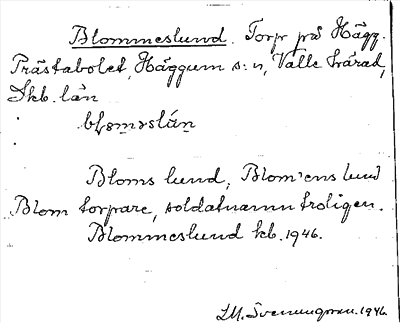 Blommeslund. Torp på Hägg.
Prästabolet, Häggum s:n, Valle härad,
Skb. län
Bloms lund, Blom'ens lund
Blom torpare, soldatnamn troligen.
Blommeslund kb. 1946.
LM. Svenungsson. 1946.